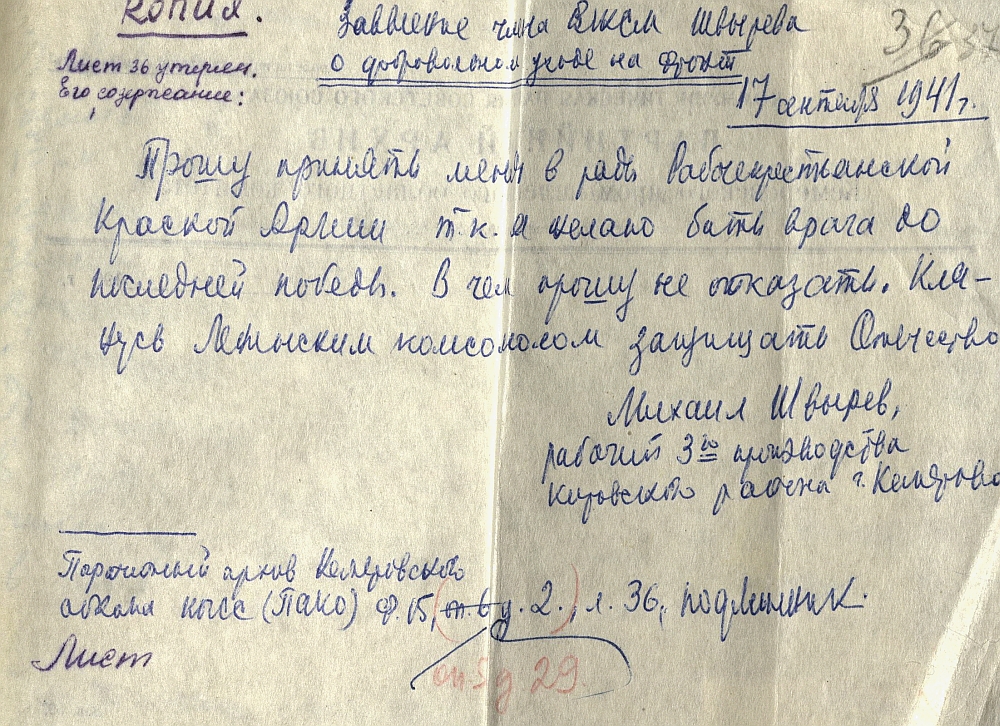 КОПИЯ.
Заявление члена ВЛКСМ Швырева
о добровольном уходе на фронт
36 37
Лист 36 утерян.
Его содержание:
17 сентября 1941 г.
Прошу принять меня в ряды Рабочекрестьянской
Красной Армии т.к. я желаю бить врага до
последней победы. В чем прошу не отказать. Кля-
нусь Ленинским комсомолом защищать Отечество
Михаил Швырев,
рабочий 3го производства
Кировского района г. Кемерово
Партийный архив Кемеровского
обкома КПСС (ПАКО) Ф. 15, оп. 6 д. 2., л. 36, подлинник.
оп 5 д 29.
Лист